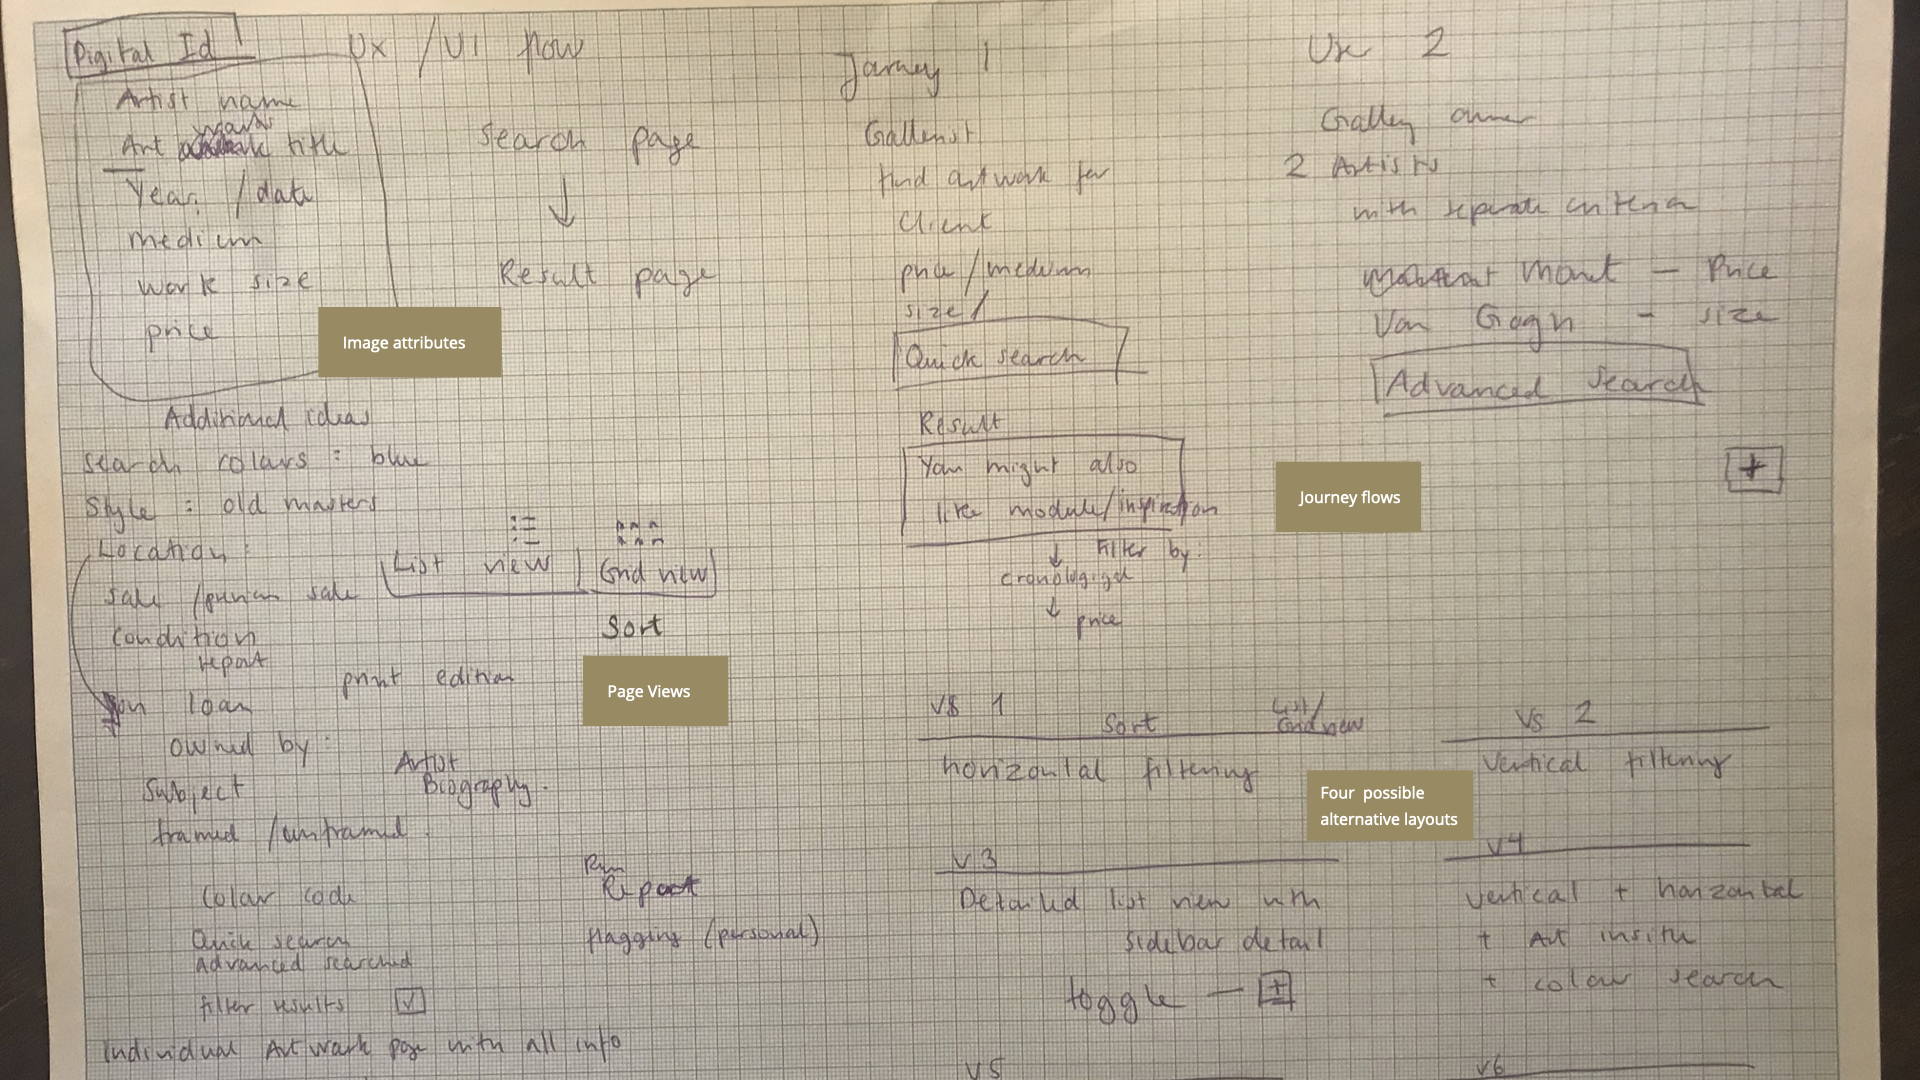 Digital Id
UX / UI flow
Artist name
Art work title
Year / date
medium
work size
price
Image attributes
Search page
↓
Result page
Additional ideas
Search colours : blue
Style : old masters
Location :
Sale / sale
Condition
report
on loan
owned by :
Subject
framed / unframed
Colour code
Quick search
Advanced searched
filter results
Individual Art work page with all info
List view
Grid view
Sort
print edition
Page Views
Artist
Biography.
Report
flagging (personal)
Journey 1
Gallerist
find artwork for
Client
price / medium
size /
Quick search
Result
You might also
like module / inspiration
↓ Filter by :
↓ price
Journey flows
2
Gallery owner
2 Artists
with seperate criteria
Monet - Price
Van Gogh - size
Advanced Search
+
VS 1
Sort
List /
Grid view
horizontal filtering
VS 2
Vertical filtering
Four possible
alternative layouts
V3
Detailed list view with
sidebar detail
toggle - +
V4
vertical + horizontal
+ Art insitu
+ colour search
V5
V6